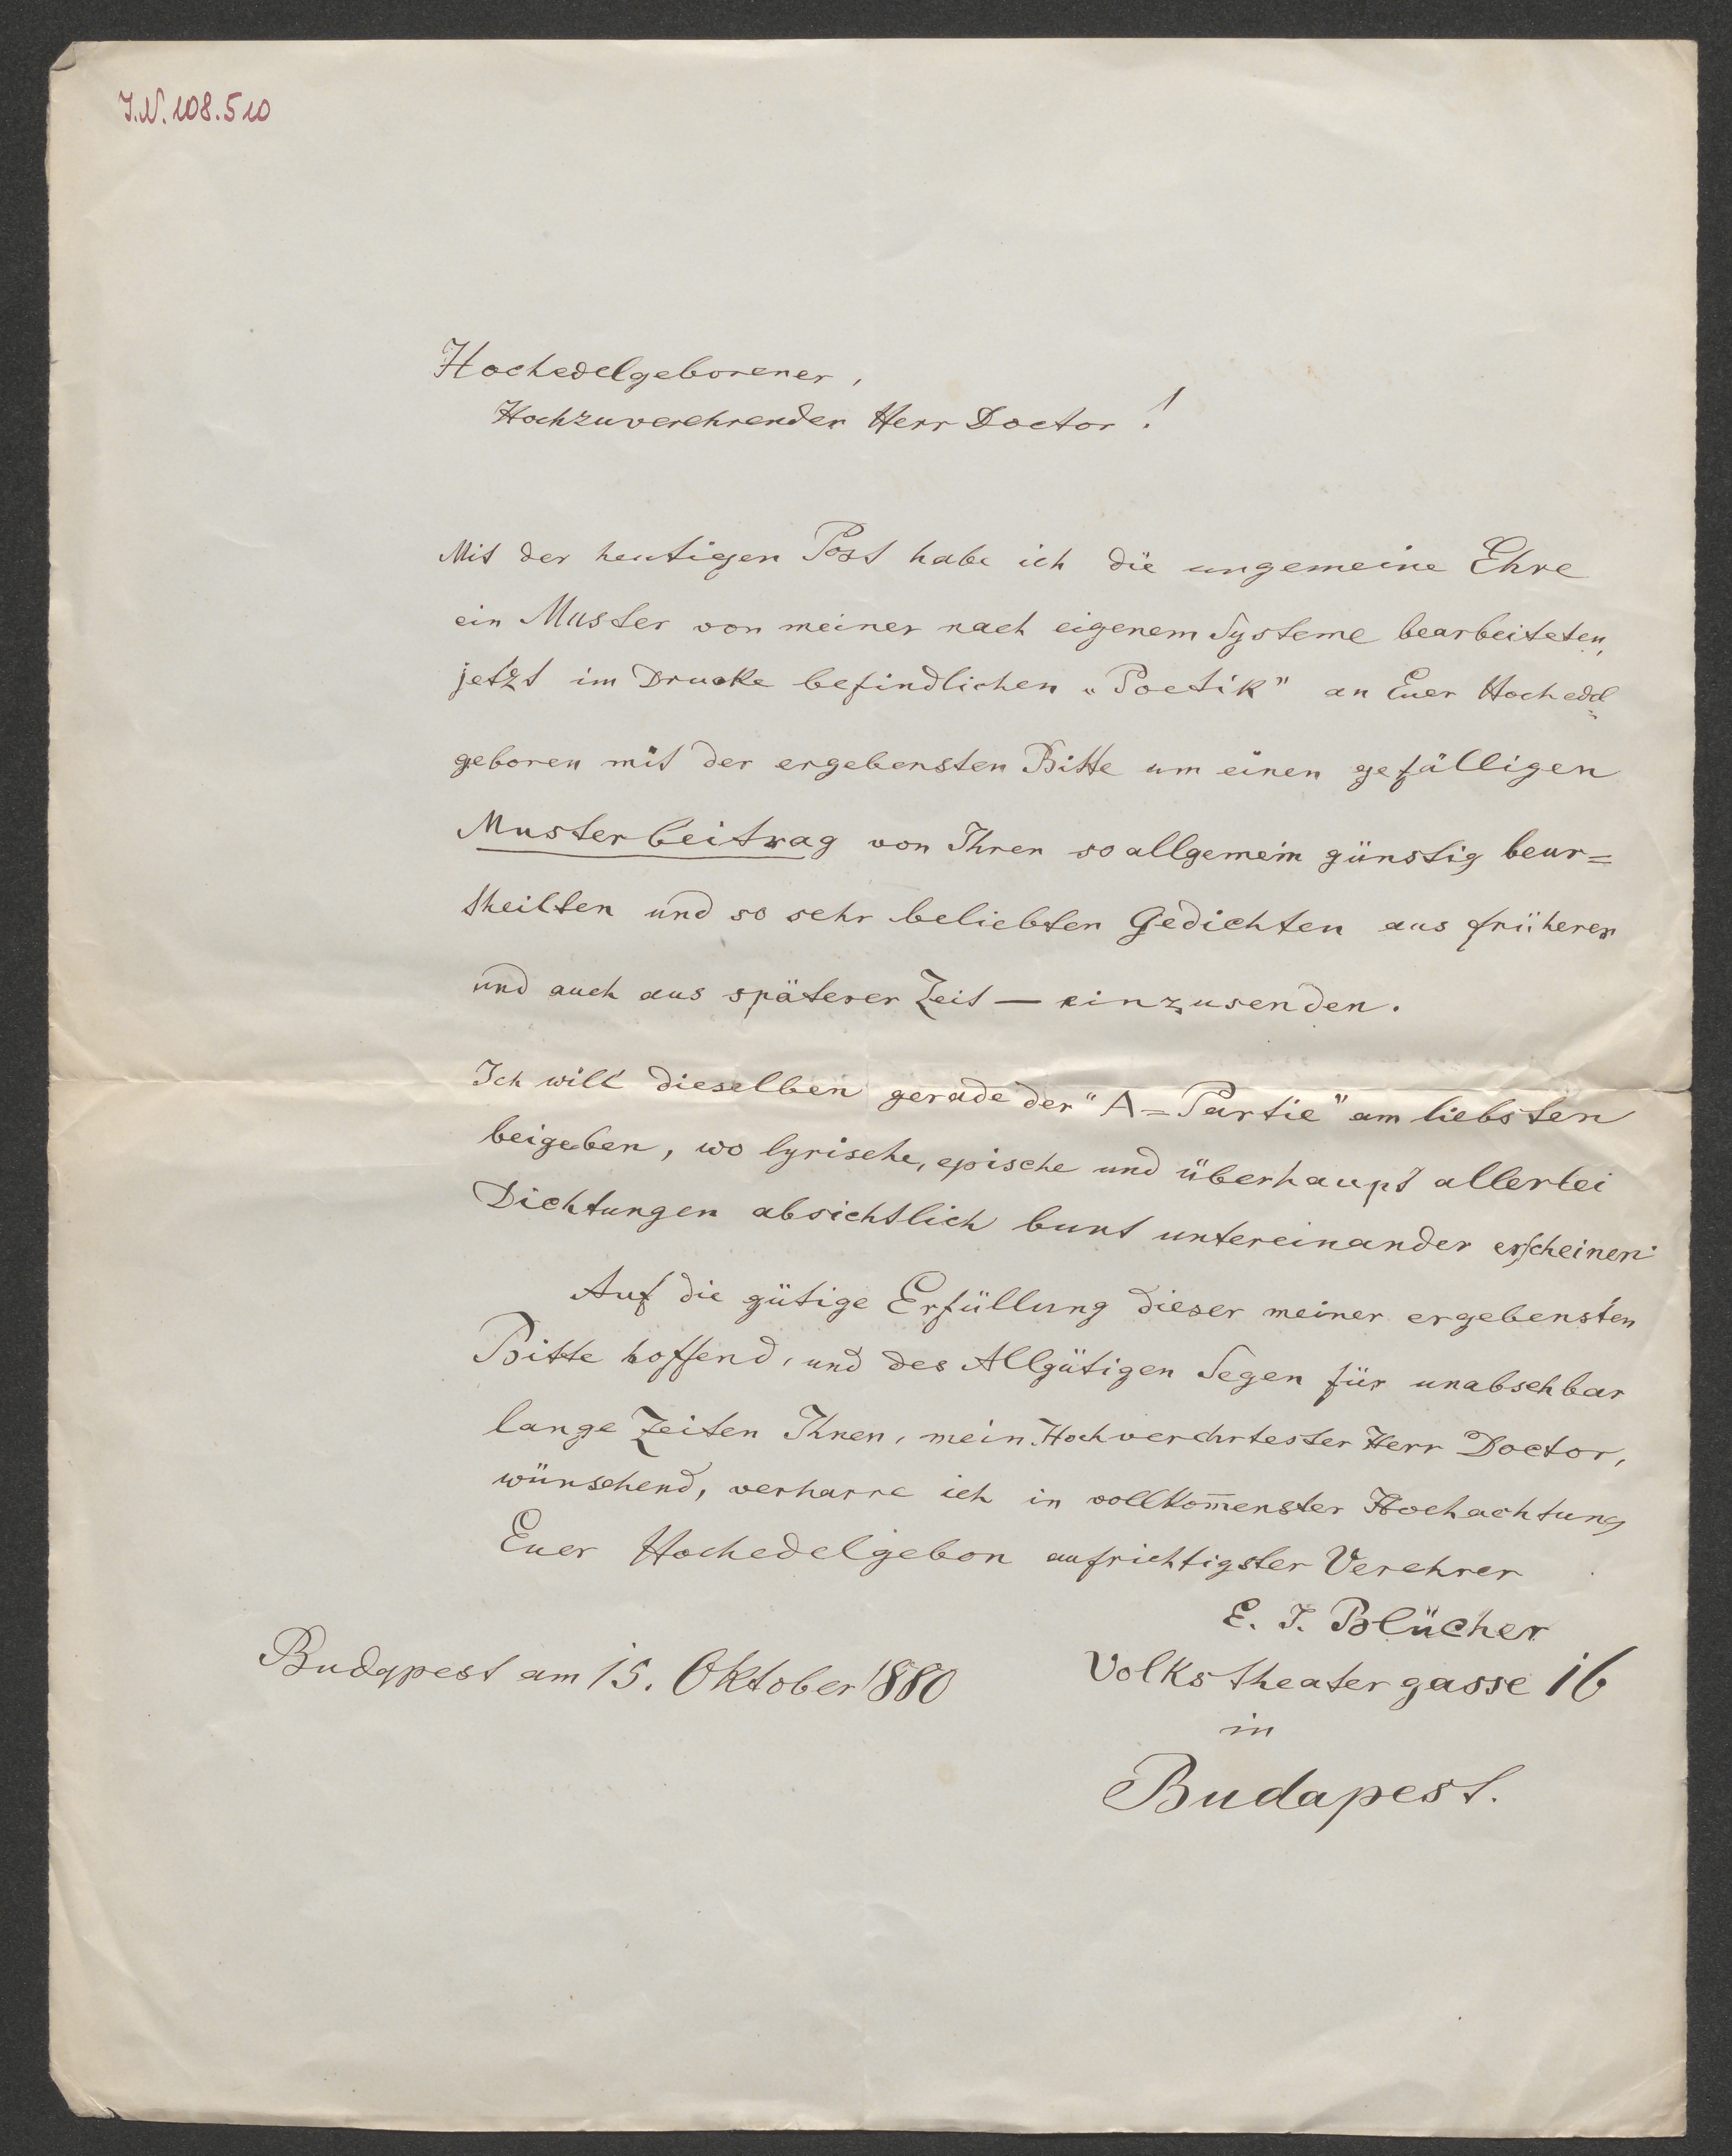 J.N. 108.510
Hochedelgeborener,
Hochzuverehrender Herr Doctor!
Mit der heutigen Post habe ich die ungemeine Ehre
ein Muster von meiner nach eigenem Systeme bearbeiteten,
jetzt im Drucke befindlichen „Poetik" an Euer Hochedel=
geboren mit der ergebensten Bitte um einen gefälligen
Musterbeitrag von Ihren so allgemein günstig beur=
theilten und so sehr beliebten Gedichten aus früherer
und auch aus späterer Zeit — einzusenden.
Ich will dieselben gerade der "A=Partie" am liebsten
beigeben, wo lyrische, epische und überhaupt allerlei
Dichtungen absichtlich bunt untereinander erscheinen.
Auf die gütige Erfüllung dieser meiner ergebensten
Bitte hoffend, und des Allgütigen Segen für unabsehbar
lange Zeiten Ihnen, mein Hochverehrtester Herr Doctor,
wünschend, verharre ich in vollkom̅enster Hochachtung
Euer Hochedelgebon aufrichtigster Verehrer
E. J. Blücher
Budapest am 15. Oktober 1880
Volkstheatergasse 16
in
Budapest.